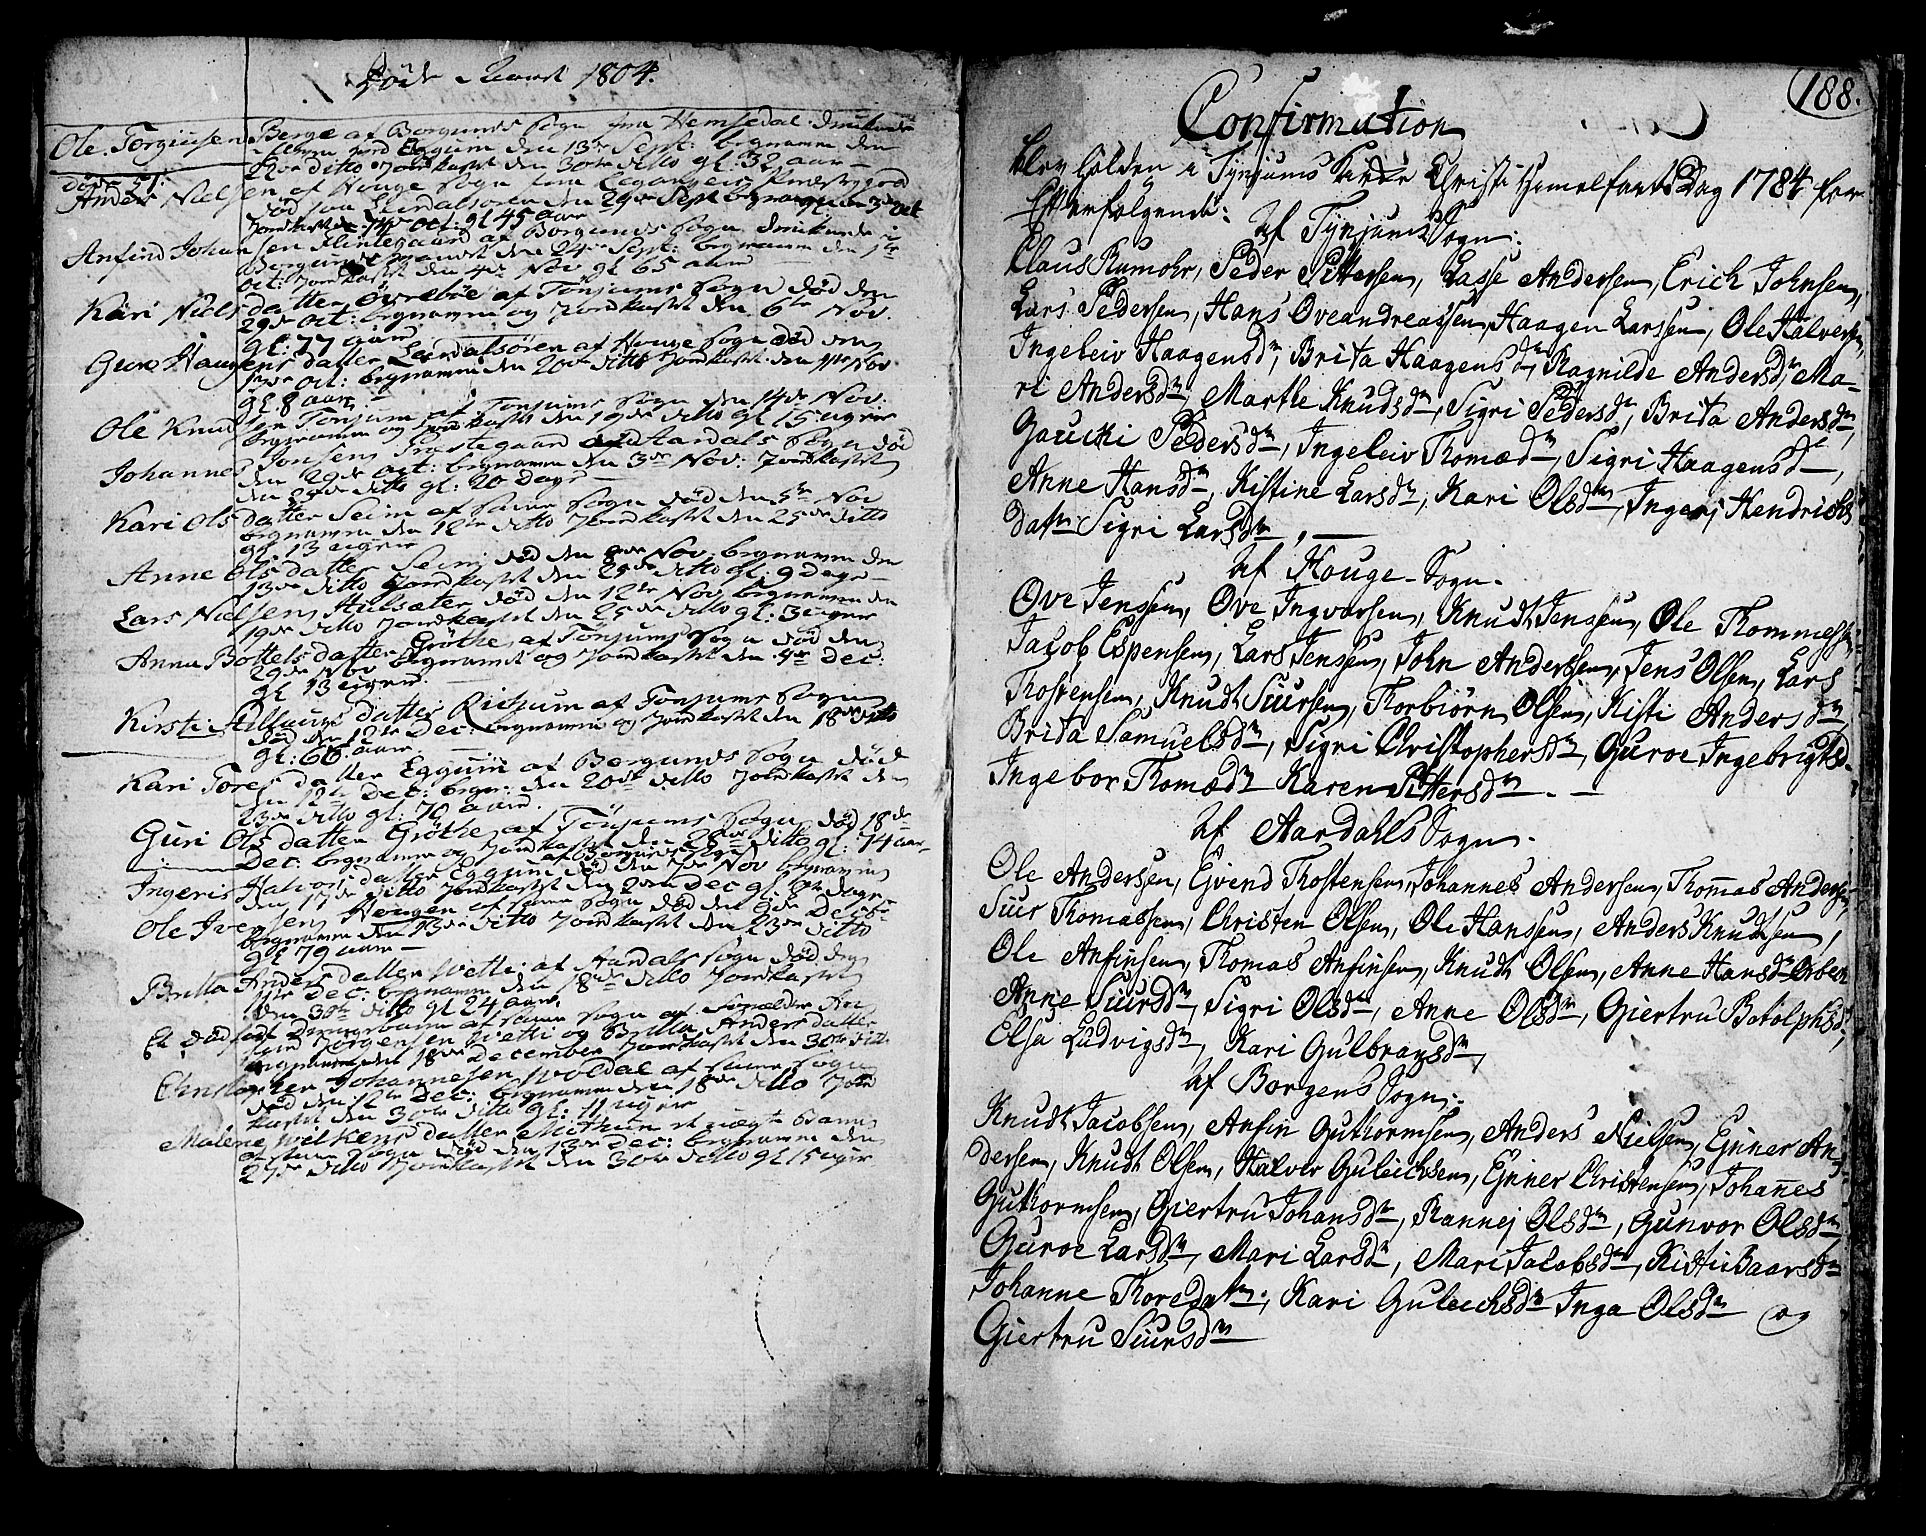 Døde Aaret 1804.
Ole Torgiusen Berge af Borgunds Sogn fra Hemsedal druknede
Eggum den 13de Sept: begravne den
ditto Jordkastet den 30te ditto gl. 32 aar
Anders Nielsen af Houge Sogn
død paa Leirdalsøren den 29de Sept begraven den 3de Oct
Jordkastet den 14de Oct: gl 45 aar
Anfind Johannsen Klintegaard af Borgunds Sogn druknede i
Borgunds den 24de Sept: begravne den 1te
Oct: Jordkastet den 4de Nov gl 65 aar
Kari Nielsdatter Øvrebøe af Tønjums Sogn død den
29de Oct: begravne og Jordkastet den 6te Nov.
gl: 77 aar
Guro Haugensdatter Leerdalsøren af Houge Sogn død den
13de Oct: begravne den 20de ditto Jordkastet den 11te Nov
gl. 8 aar
Ole Knudsen Tønjum af Tønjums Sogn den 14de Nov.
begravne og Jordkastet den 19de ditto gl 15 uger
Johannes Jonsen Prestegaard Aardals Sogn død
den 29de Oct: begravne den 3de Nov: Jordkastet
den ditto gl: 20 Dage
Kari Olsdatter Seim af samme Sogn død den 5te Nov
begravne den 12te ditto Jordkastet den 25de ditto
gl 13 uger
Anne Olsdatter Seim død den 8de Nov, begravne den
13de ditto Jordkastet den 25de ditto gl: 9 Dage
Lars Nielsen Hulsæter død den 12te Nov begravne den
19de ditto Jordkastet den 25de ditto gl: 3 uger
Anna Bottelsdatter Grøthe af Tønjums Sogn død den
29de Nov begravne og Jordkastet den 4de Dec:
gl 13 uger
Kirsti datter af Tønjums Sogn
død den 12te Dec: begravne og Jordkastet den 18de ditto
gl: 66 aar
Kari Toresdatter Eggum af Borgunds Sogn død
den 12te Dec: begr: den 20de ditto Jordkastet den
23de ditto gl: 70 aar
Guri Olsdatter Grøthe af Tønjums Sogn død 18de
Dec: begravne og Jordkastet den 28de ditto gl: 74 aar
Ingeris Halvorsdatter Eggum død den 7de Nov begravne
den 17de ditto Jordkastet den 2den Dec gl. dage
Ole Iversen Hougen af samme Sogn død den 9de Decbr
begravne den 13de ditto Jordkastet den 23de ditto
gl 79 aar
Britta Andersdatter Vetti af Aardals Sogn død den
11te Dec: begravne den 18de ditto Jordkastet
den 30te ditto gl 24 aar,
Et dødfødt Drengebarn af samme Sogn af Forældre An
Jørgensen Vetti og Britta Andersdatter
begravne den 18de December Jordkastet den 30te ditto
Christopher Johannesen Woldal af samme Sogn
død den 12te Dec: begravne den 18de ditto Jord
kastet den 30te ditto gl: 11 uger
Malene Wilkensdatter Methun et uægte Barn
af samme Sogn død den 13de Dec: begravne den
27de ditto Jordkastet den 30te ditto gl 15 uger
188.
Confirmation
blev holden i Tynjums Kirke Christi Himelfarts Dag 1784 for
Efterfølgende:
af Tynjums Sogn:
Claus Rumohr, Peder Pettersen, Lasse Andersen, Erich Johnsen,
Lars Pedersen, Hans Oveandreassen, Haagen Larssen, Ole Halversen,
Ingeleiv Haagensdr, Brita Haagensdr, Ragnilde Andersdr, Ma-
ri Andersdr, Marthe Knudsdr, Sigri Pedersdr, Brita Andersdr,
Gaucki Pedersdr, Ingeleiv Thomædr, Sigri Haagensdr,
Anne Hansdr, Kistine Larsdr, Kari Olsdr, Ingerj Hendrichs
datr Sigri Larsdr,
af Houge-Sogn.
Ove Jenssen, Ove Ingvorsen, Knudt Jenssen, Ole Thommessen,
Jacob Espensen, Lars Jenssen, John Anderssen, Jens Olsen, Lars
Thostensen, Knudt Siursen, Thorbiørn Olsen, Kisti Andersdr
Brita Samuelsdr, Sigri Christophersdr, Guroe Ingebrigtsd.
Ingebor Thomædr Karen Pittersdr.
af Aardahls Sogn.
Ole Andersen, Ejvend Thostensen, Johannes Andersen, Thomas Andersen,
Siur Thomassen, Christen Olsen, Ole Hanssen, Anders Knudtsen,
Ole Anfinsen, Thomas Anfinsen, Knudt Olsen, Anne Hansdr Orbech
Anne Siursdr, Sigri Olsdr, Anne Olsdr, Giertru Botolphsd,
Elsa Ludvigsdr, Kari Gulbransdr,
af Borgens Sogn:
Knudt Jacobsen, Anfin Guthormsen, Anders Nielsen, Ejnner An-
dersen, Knudt Olsen, Halvor Guleichsen, Ejnner Christensen, Johannes
Guthormsen, Giertru Johansdr, Rannej Olsdr, Gunvor Olsdr,
Guroe Larsdr, Mari Larsdr, Mari Jacobsdr, Kisti Baarsdr
Johanne Thoredatr., Kari Guleichsdr Inga Olsdr og
Giertru Siursdr